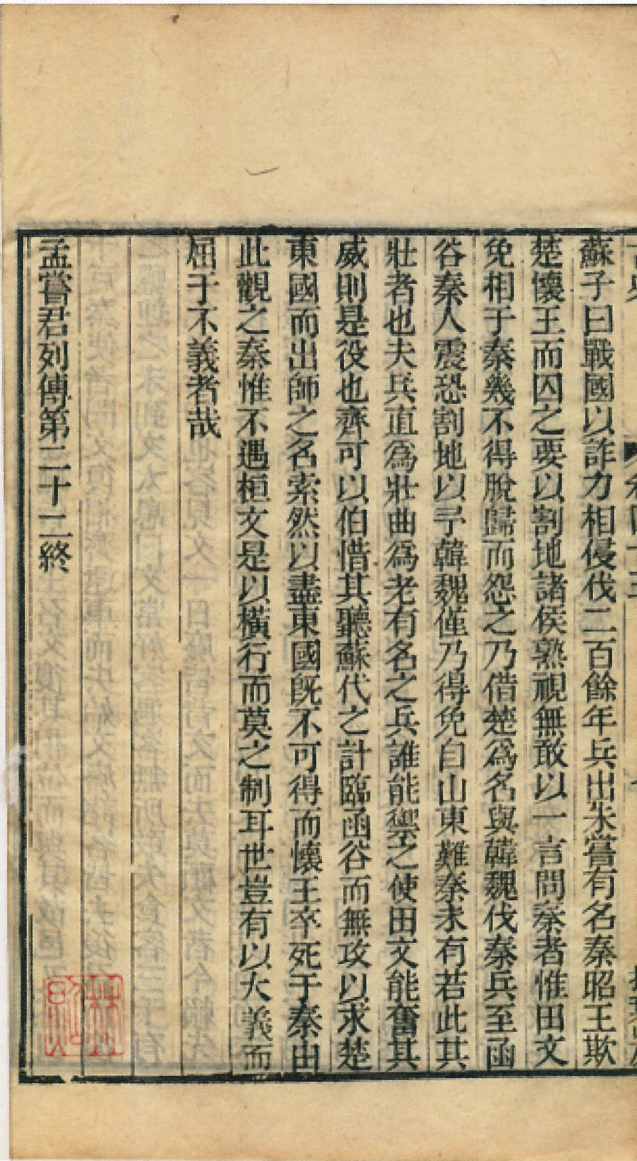 蘇子曰戰國以詐力相侵伐二百餘年兵出未嘗有名秦昭王欺
楚懷王而囚之要以割地諸侯熟視無敢以一言問秦者惟田文
免相于秦幾不得脫歸而怨之乃借楚爲名與韓魏伐秦兵至函
谷秦人震恐割地以予韓魏僅乃得免自山東難秦未有若此其
壯者也夫兵直爲壯曲爲老有名之兵誰能禦之使田文能奮其
威則是役也齊可以伯惜其聽蘇代之計臨函谷而無攻以求楚
東國而出師之名索然以盡東國旣不可得而懷王卒死于秦由
此觀之秦惟不遇桓文是以橫行而莫之制耳世豈有以大義而
屈于不義者哉
孟嘗君列傳第二十二終